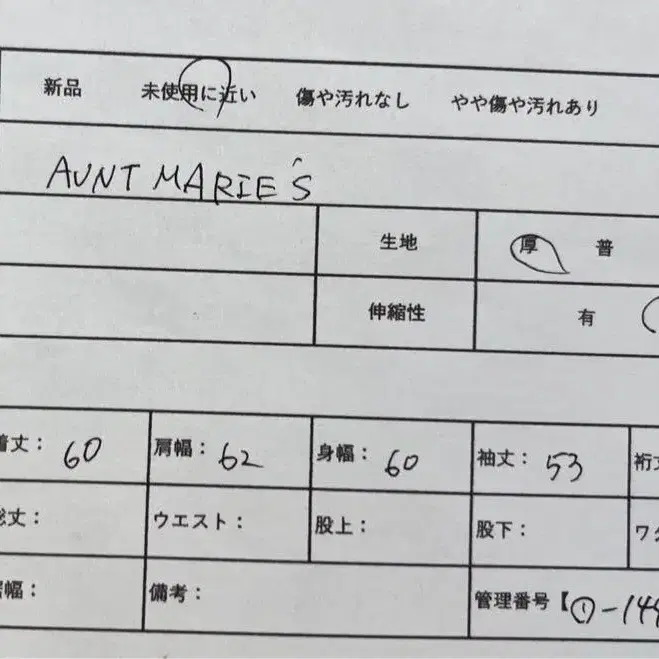 新品 未使用に近い 傷や汚れなし やや傷や汚れあり
AUNT MARIE'S
生地 厚 普
伸縮性 有
着丈: 60 肩幅: 62 身幅: 60 袖丈: 53 裄丈
総丈: ウエスト: 股上: 股下: ワタ
裾幅: 備考: 管理番号【①-14